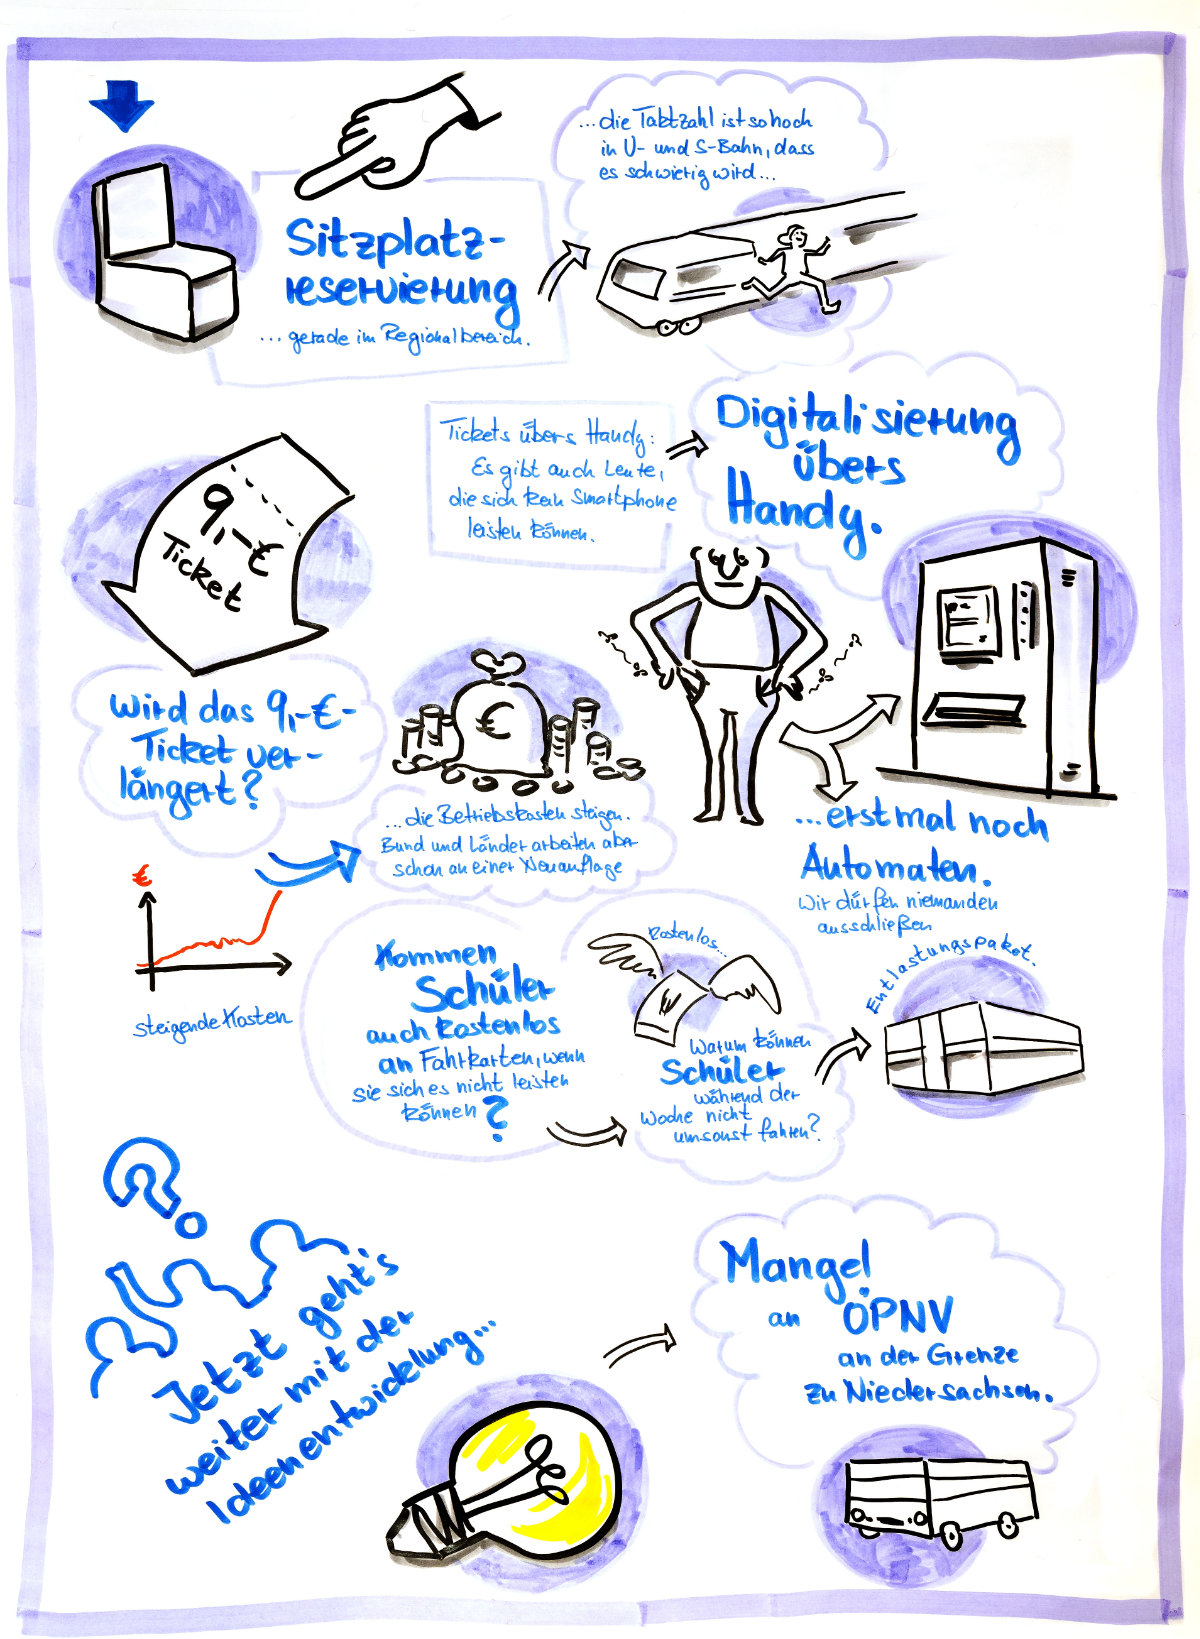 ...die Taktzahl ist so hoch
in U- und S-Bahn, dass
es schwierig wird...
Sitzplatz-
reservierung
...gerade im Regionalbereich.
Tickets übers Handy:
Es gibt auch Leute,
die sich kein Smartphone
leisten können.
Digitalisierung
übers
Handy.
9,-€
Ticket
Wird das 9,-€-
Ticket ver-
längert?
€
...die Betriebskosten steigen.
Bund und Länder arbeiten aber
schon an einer Neuauflage
...erstmal noch
Automaten.
Wir dürfen niemanden
ausschließen
€
steigende Kosten
Kommen
Schüler
auch kostenlos
an Fahrkarten, wenn
sie sich es nicht leisten
können?
kostenlos...
€
Warum können
Schüler
während der
Woche nicht
umsonst fahren?
Entlastungspaket.
?
Jetzt geht's
weiter mit der
Ideenentwicklung...
Mangel
an ÖPNV
an der Grenze
zu Niedersachsen.